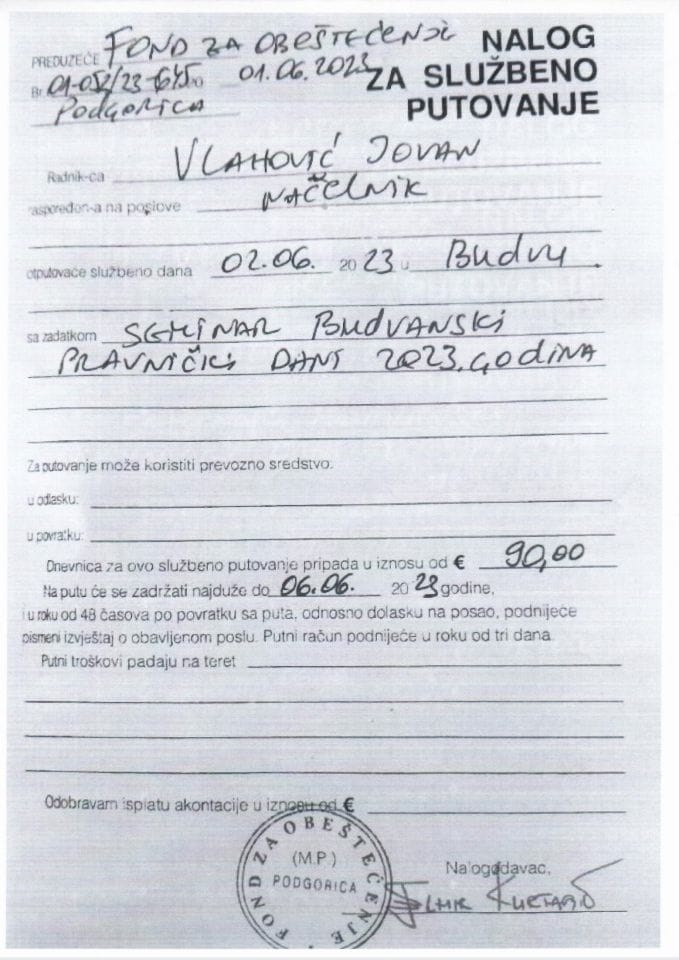 PREDUZEĆE FOND ZA OBEŠTEĆENJE
NALOG
ZA SLUŽBENO
PUTOVANJE
Br. 01-052/23-645/0 01.06.2023
Podgorica
Radnik-ca VLAHOVIĆ JOVAN
raspoređen-a na poslove NAČELNIK
otputovaće službeno dana 02.06. 2023 u Budvu
sa zadatkom SEMINAR BUDVANSKI
PRAVNIČKI DANI 2023. GODINA
Za putovanje može koristiti prevozno sredstvo:
u odlasku:
u povratku:
Dnevnica za ovo službeno putovanje pripada u iznosu od € 90,00
Na putu će se zadržati najduže do 06.06. 2023 godine,
i u roku od 48 časova po povratku sa puta, odnosno dolasku na posao, podnijeće
pismeni izvještaj o obavljenom poslu. Putni račun podnijeće u roku od tri dana.
Putni troškovi padaju na teret
Odobravam isplatu akontacije u iznosu od €
FOND ZA OBEŠTEĆENJE
(M.P.)
PODGORICA
Nalogodavac,